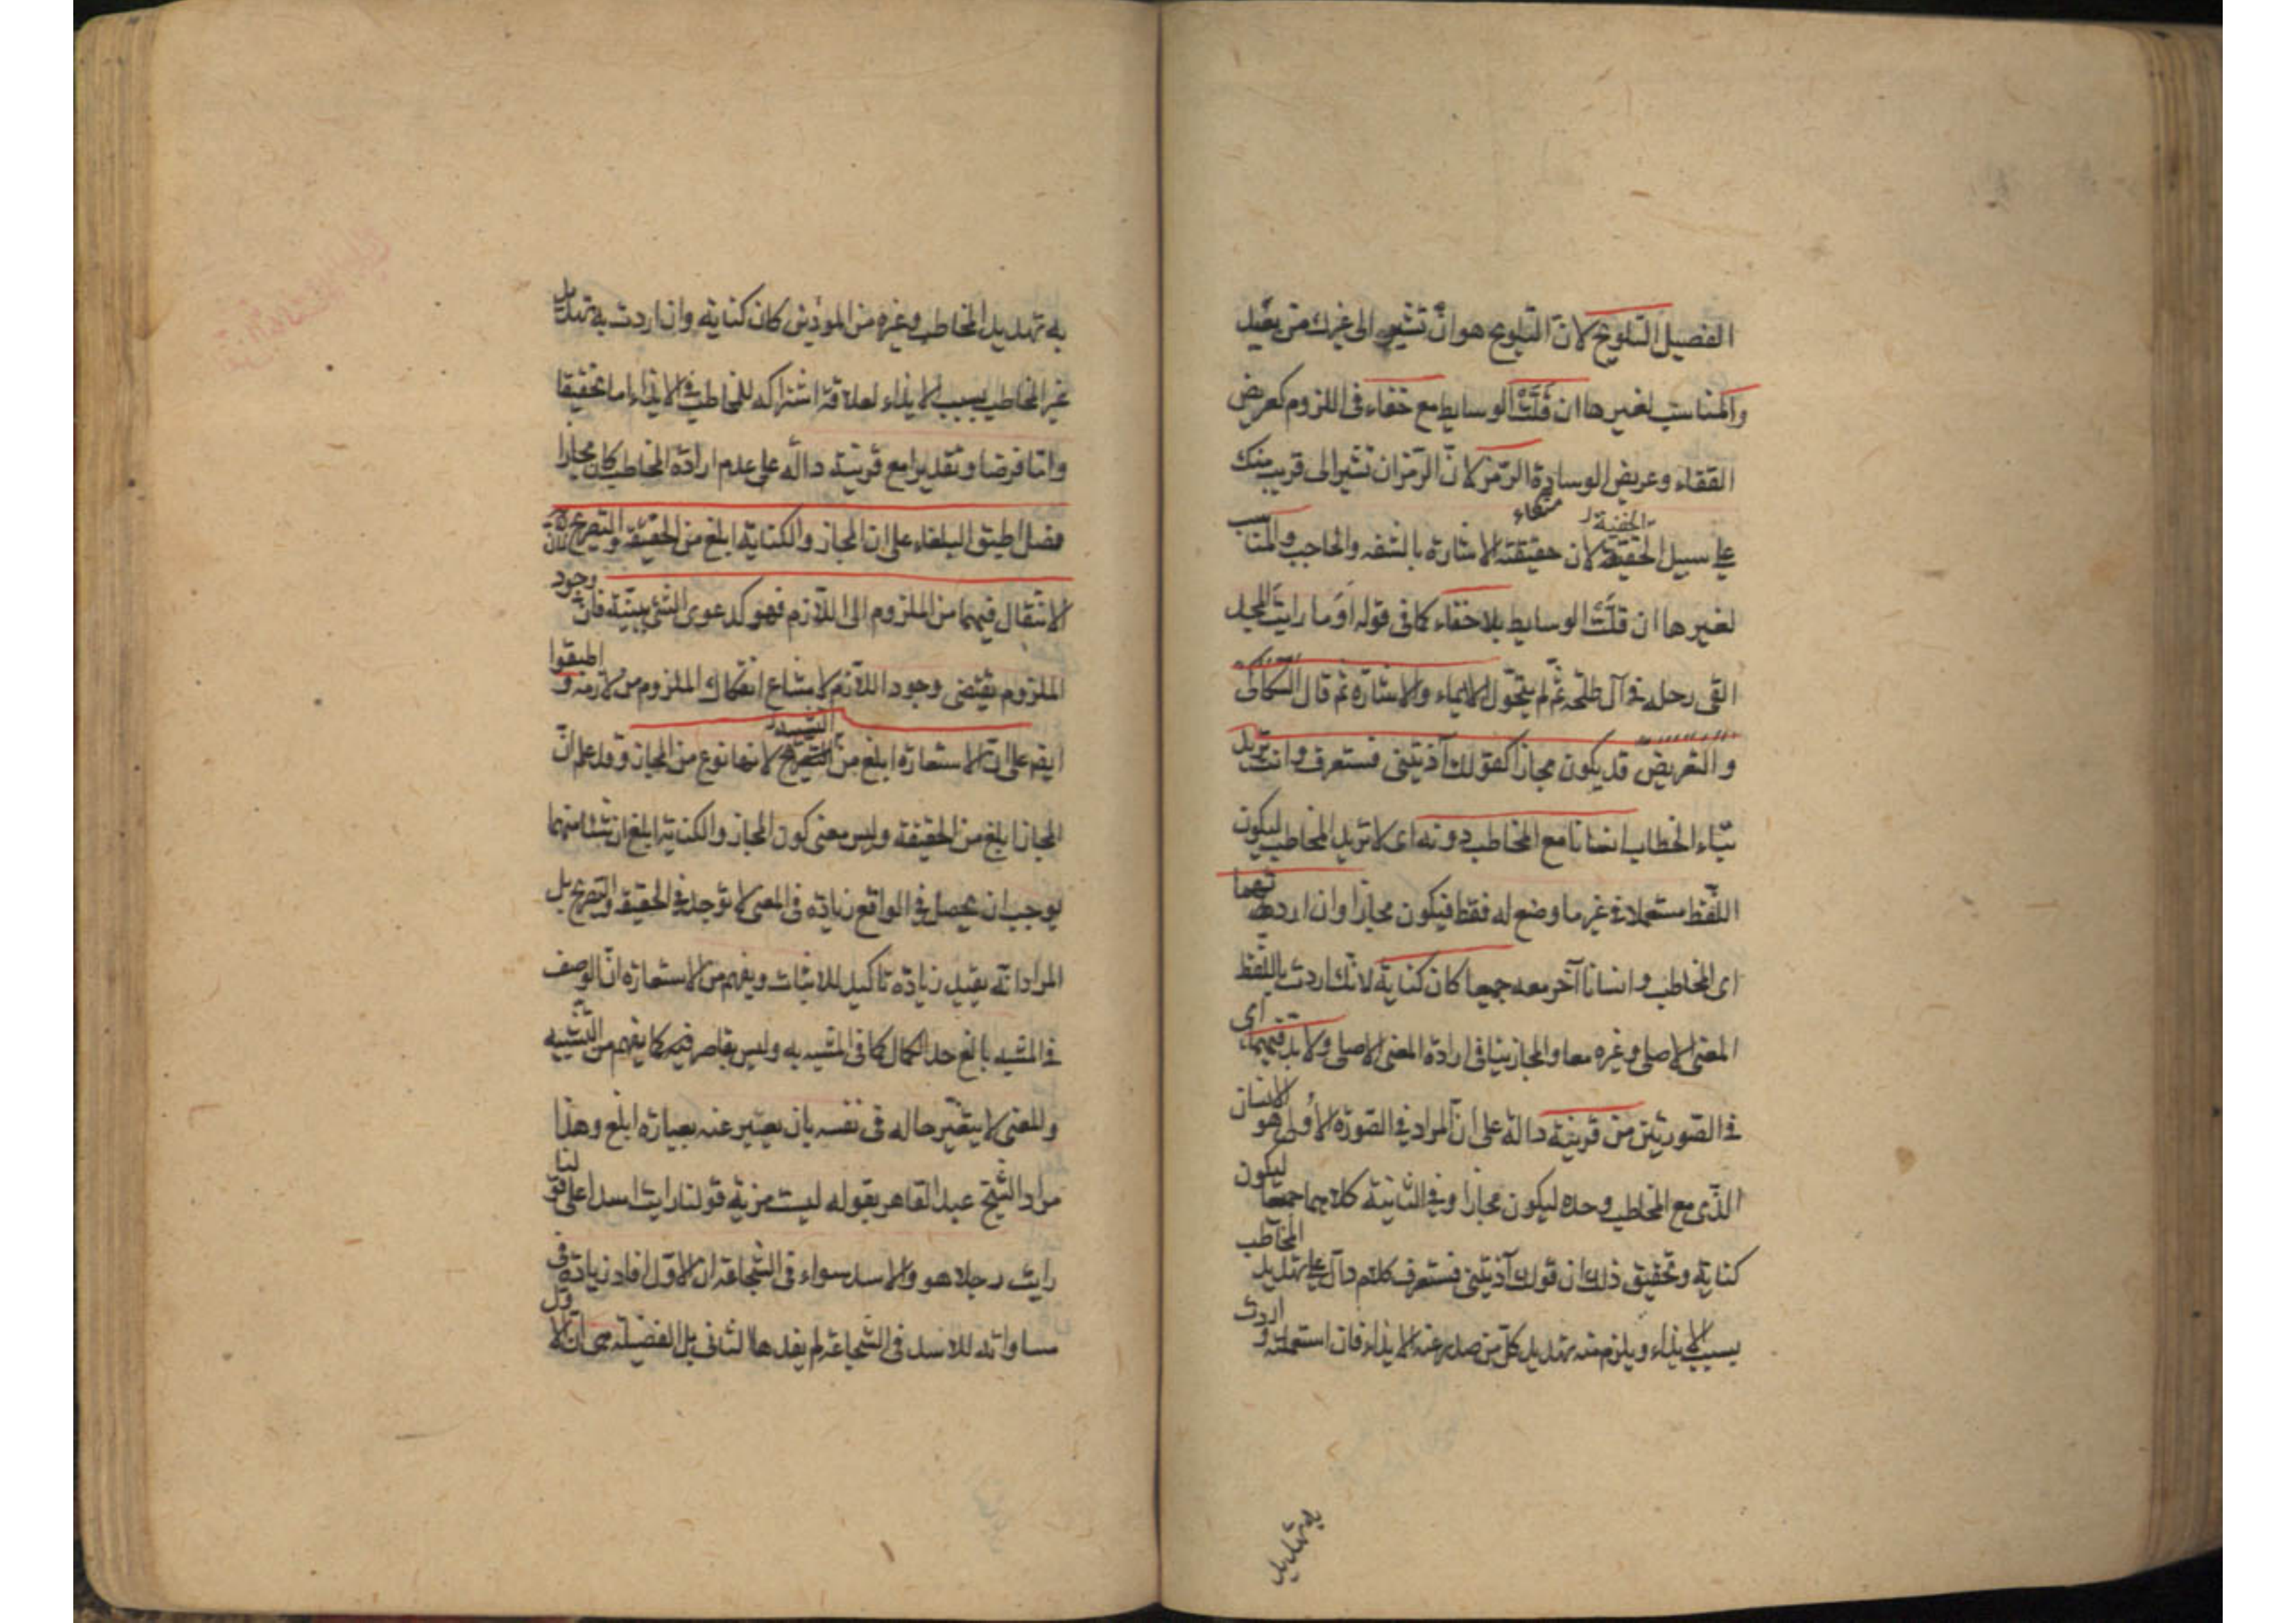 الفصيل التلويح لان التلويح هو ان تشير الى غيرك من بعيد
والمناسب لغيرها ان قلّت الوسايط مع خفاء فى اللزوم كعريض
القفاء وعريض الوسادة الرمز لان الرمز ان تشير الى قريب منك
على سبيل الخفية لان حقيقته الاشارة بالشفه والحاجب والمناسب
لغيرها ان قلّت الوسايط بلا خفاء كما فى قوله اوما رايت المجد
القى رحله فى آل طلحه ثم لم يتحوّل الايماء والاشارة ثم قال السكاكى
والتعريض قد يكون مجازا كقولك آذيتنى فستعرف وانت تريد
بتاء الخطاب انسانا مع المخاطب دونه اى لا تريد المخاطب ليكون
اللفظ مستعملا فى غير ما وضع له فقط فيكون مجازا وان اردتهما
اى المخاطب وانسانا آخر معه جميعا كان كناية لانك اردت باللفظ
المعنى الاصلى وغيره معا والمجاز ينافى ارادة المعنى الاصلى ولا بد فيهما اى
فى الصورتين من قرينة دالة على ان المراد فى الصورة الاولى هو الانسان
الذى مع المخاطب وحده ليكون مجازا وفى الثانية كلاهما جميعا ليكون
كناية وتحقيق ذلك ان قولك آذيتنى فستعرف كلام دال على تهديد المخاطب
بسبب الايذاء ويلزم منه تهديد كل من صدر عنه الايذاء فان استعملته واردت
به تهديد
به تهديد المخاطب وغيره من الموذين كان كناية وان اردت به تهديد
غير المخاطب بسبب الايذاء لعلاقة اشتراكه للمخاطب فى الايذاء اما تحقيقا
واما فرضا وتقديرا مع قرينة دالة على عدم ارادة المخاطب كان مجازا
فصل اطبق البلغاء على ان المجاز والكناية ابلغ من الحقيقة والتصريح لان
الانتقال فيهما من الملزوم الى اللازم فهو كدعوى الشئ ببينة فان وجود
الملزوم يقتضى وجود اللازم لامتناع انفكاك الملزوم من لازمه واطبقوا
ايضا على ان الاستعارة ابلغ من التشبيه لانها نوع من المجاز وقد علم ان
المجاز ابلغ من الحقيقة وليس معنى كون المجاز والكناية ابلغ ان شيئا منهما
يوجب ان يحصل فى الواقع زيادة فى المعنى لا توجد فى الحقيقة والتصريح بل
المراد انه يفيد زيادة تاكيد للاثبات ويفهم من الاستعارة ان الوصف
فى المشبه بالغ حد الكمال كما فى المشبه به وليس بقاصر فيه كما يفهم من التشبيه
والمعنى لا يتغير حاله فى نفسه بان يعبر عنه بعبارة ابلغ وهذا
مراد الشيخ عبد القاهر بقوله ليست مزية قولنا رايت اسدا على قولنا
رايت رجلا هو والاسد سواء فى الشجاعة ان الاول افاد زيادة فى
مساواته للاسد فى الشجاعة لم يفدها الثانى بل الفضيلة هى ان الاول